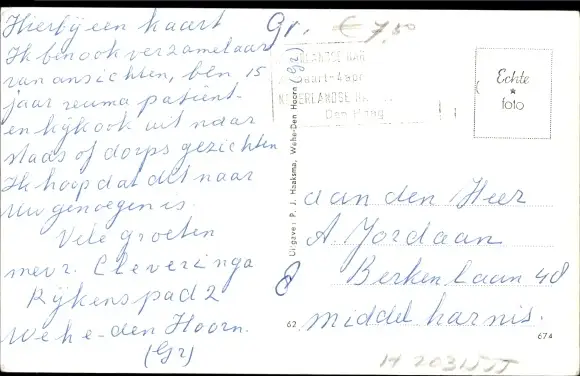 Hierbij een kaart
Ik ben ook verzamelaar
van ansichten, ben 15
jaar reuma patiënt.
en kijk ook uit naar
staas of dorps gezichten
Ik hoop dat dit naar
Uw genoegen is.
Vele groeten
mevr. Cleveringa
Rijkenspad 2
Wehe-den Hoorn.
(Gr)
Gr. € 7,50
Den Haag
Uitgave: P. J. Haaksma, Wehe-Den Hoorn (Gr)
Echte
★
foto
aan den Heer
A. Jordaan
Berkenlaan 48
middelharnis.
62
674